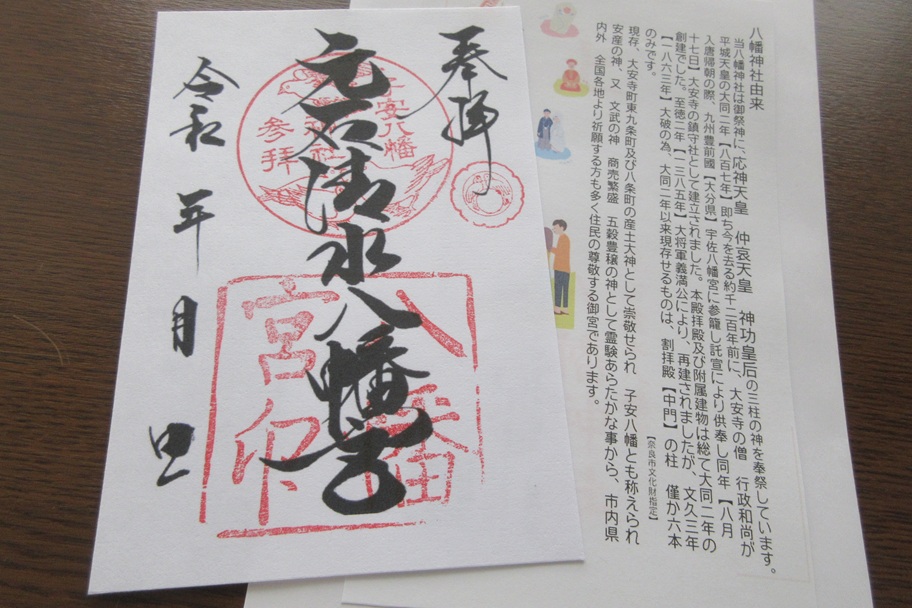 奉拝
元石清水八幡宮
令和 年 月 日
子安八幡
参拝
八幡
宮印
八幡神社由来
当八幡神社は御祭神に、応神天皇 仲哀天皇 神功皇后の三柱の神を奉祭しています。
平城天皇の大同二年【八百七年】即ち今を去る約千二百年前に、大安寺の僧 行政和尚が
入唐帰朝の際、九州豊前國【大分県】宇佐八幡宮に参籠し託宣により供奉し同年【八月
十七日】大安寺の鎮守社として建立されました。本殿拝殿及び附属建物は総て大同二年の
創建でした。至徳二年【一三八五年】大将軍義満公により、再建されましたが、文久三年
【一八六三年】大破の為、大同二年以来現存せるものは、割拝殿【中門】の柱 僅か六本
のみです。
【奈良市文化財指定】
現存、大安寺町東九条町及び八条町の産土大神として崇敬せられ 子安八幡とも称えられ
安産の神、又 文武の神 商売繁盛 五穀豊穣の神として霊験あらたかな事から、市内県
内外 全国各地より祈願する方も多く住民の尊敬する御宮であります。